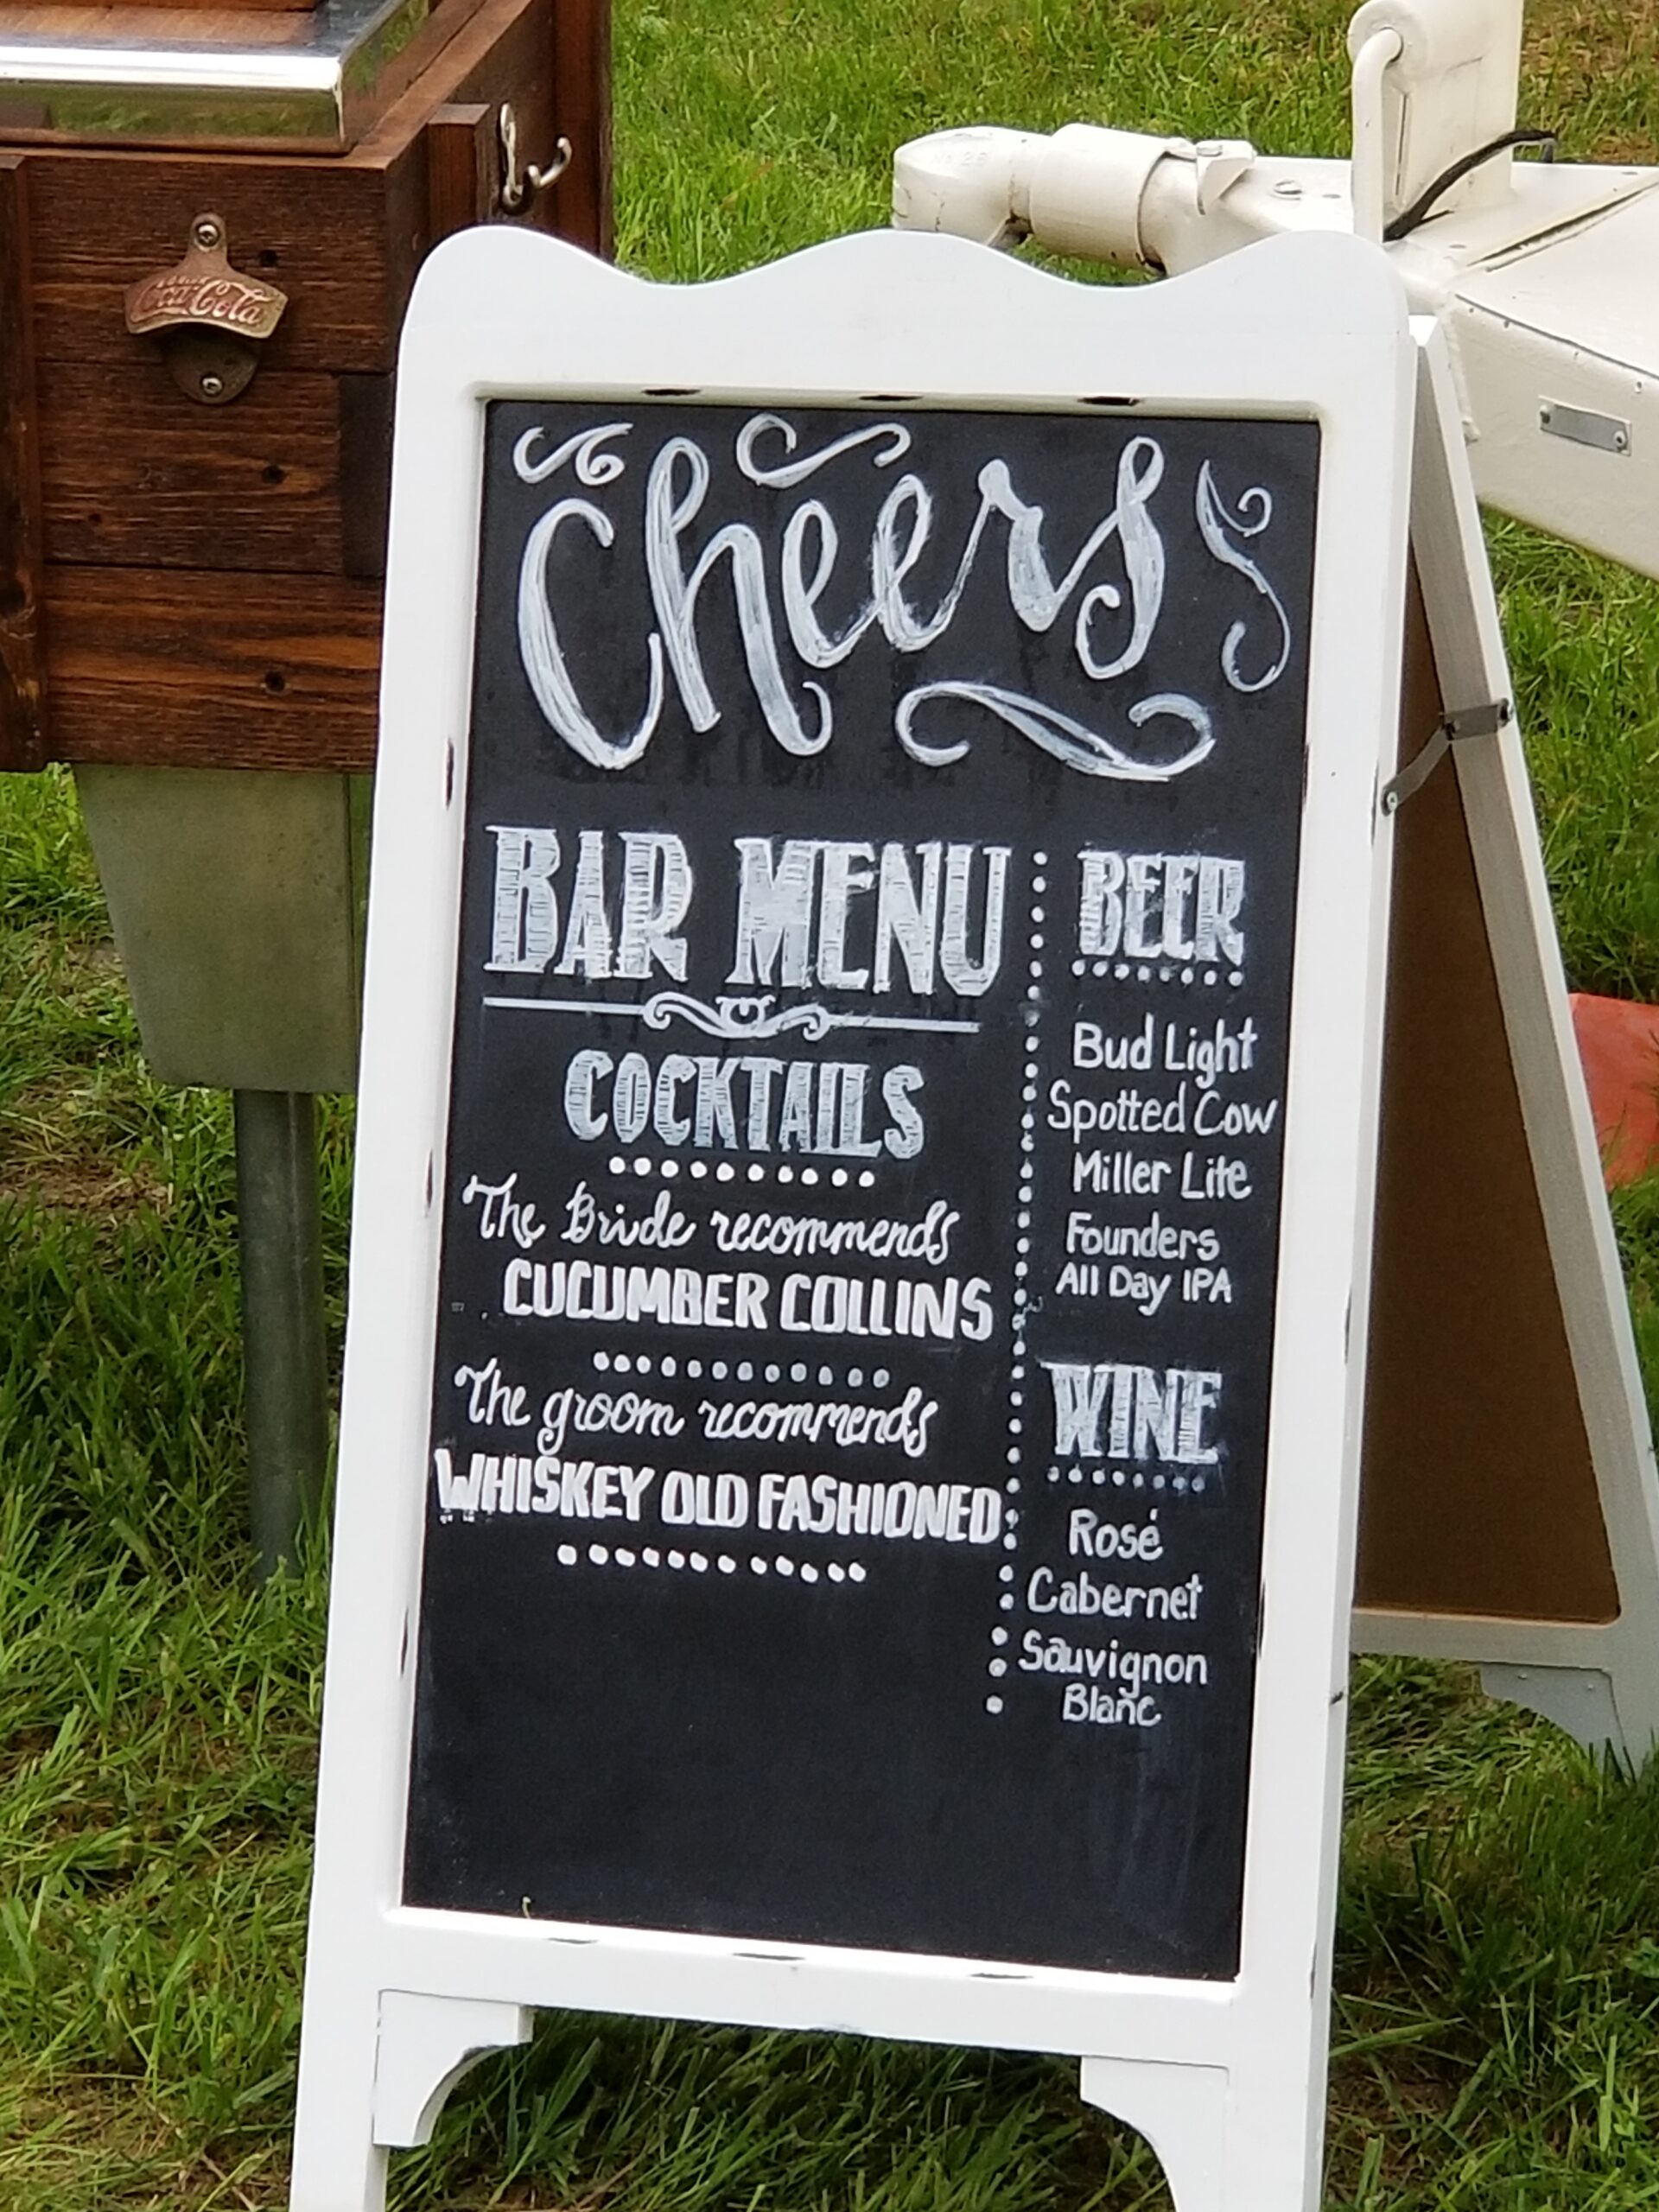 Coca-Cola
Cheers
BAR MENU
COCKTAILS
The Bride recommends
CUCUMBER COLLINS
The groom recommends
WHISKEY OLD FASHIONED
BEER
Bud Light
Spotted Cow
Miller Lite
Founders
All Day IPA
WINE
Rosé
Cabernet
Sauvignon
Blanc